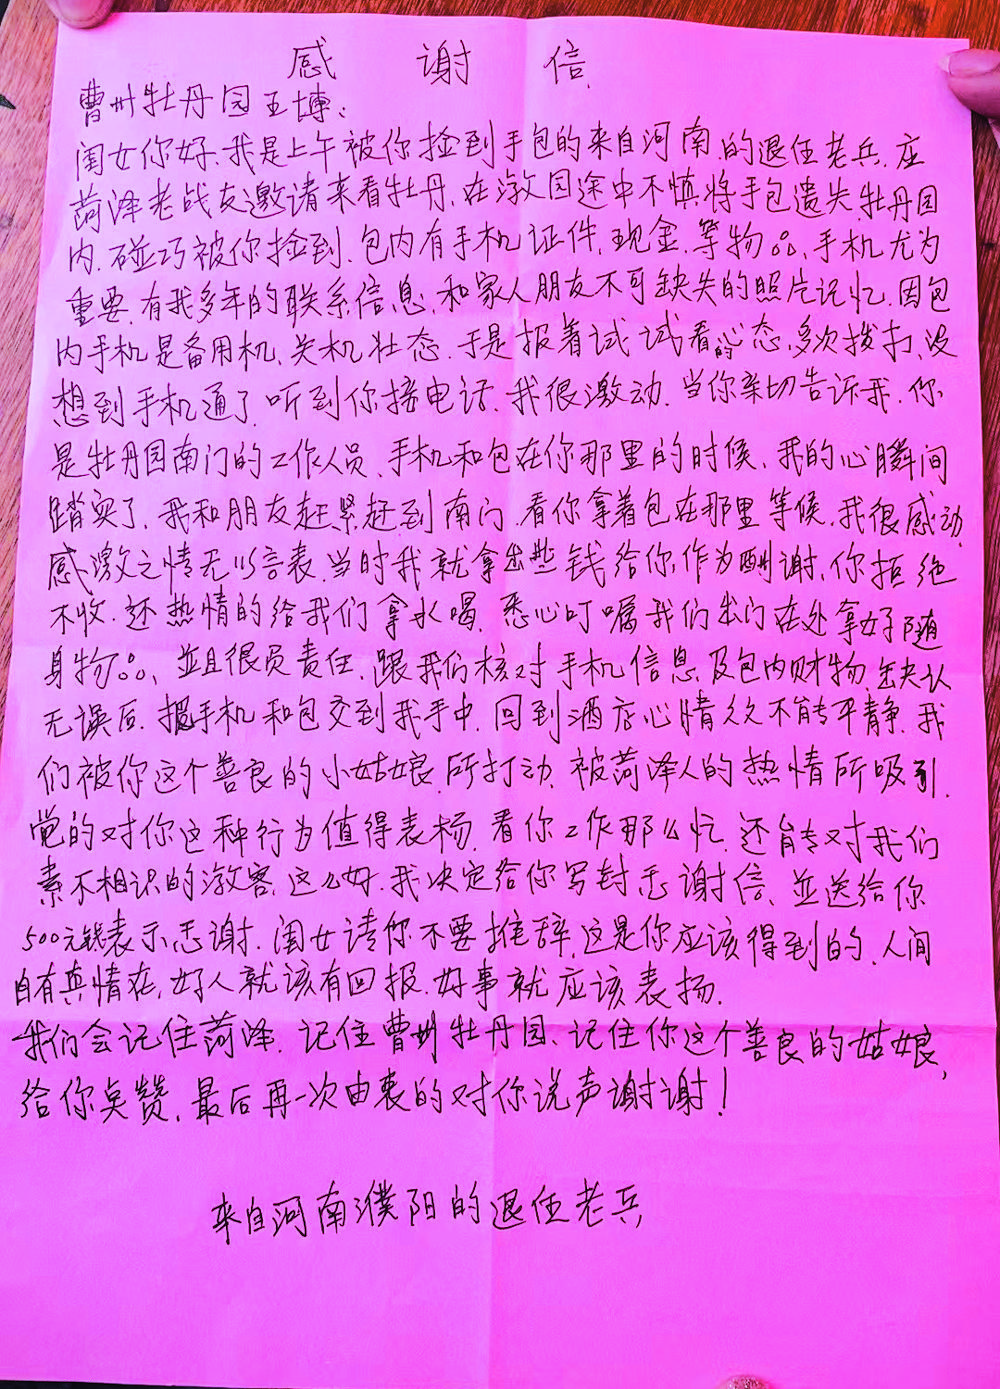 感谢信
曹州牡丹园王博：
闺女你好、我是上午被你捡到手包的来自河南的退伍老兵、应
菏泽老战友邀请来看牡丹、在游园途中不慎将手包遗失牡丹园
内、碰巧被你捡到、包内有手机证件、现金、等物品、手机尤为
重要、有我多年的联系信息、和家人朋友不可缺失的照片记忆、因包
内手机是备用机、关机壮态、于是报着试试看的心态、多次拨打、没
想到手机通了、听到你接电话、我很激动、当你亲切告诉我、你
是牡丹园南门的工作人员、手机和包在你那里的时候、我的心瞬间
踏实了、我和朋友赶紧赶到南门、看你拿着包在那里等候、我很感动、
感激之情无以言表、当时我就拿出些钱给你作为酬谢、你拒绝
不收、还热情的给我们拿水喝、悉心叮嘱我们出门在处拿好随
身物品、並且很负责任、跟我们核对手机信息、及包内财物、确认
无误后、把手机和包交到我手中、回到酒店心情久久不能平静、我
们被你这个善良的小姑娘所打动、被菏泽人的热情所吸引、
觉的对你这种行为值得表杨、看你工作那么忙、还能对我们
素不相识的游客、这么好、我决定给你写封感谢信、並送给你
500元钱表示感谢、闺女请你不要推辞、这是你应该得到的、人间
自有真情在、好人就该有回报、好事就应该表扬、
我们会记住菏泽、记住曹州牡丹园、记住你这个善良的姑娘、
给你点赞、最后再一次由衷的对你说声谢谢！
来自河南濮阳的退伍老兵